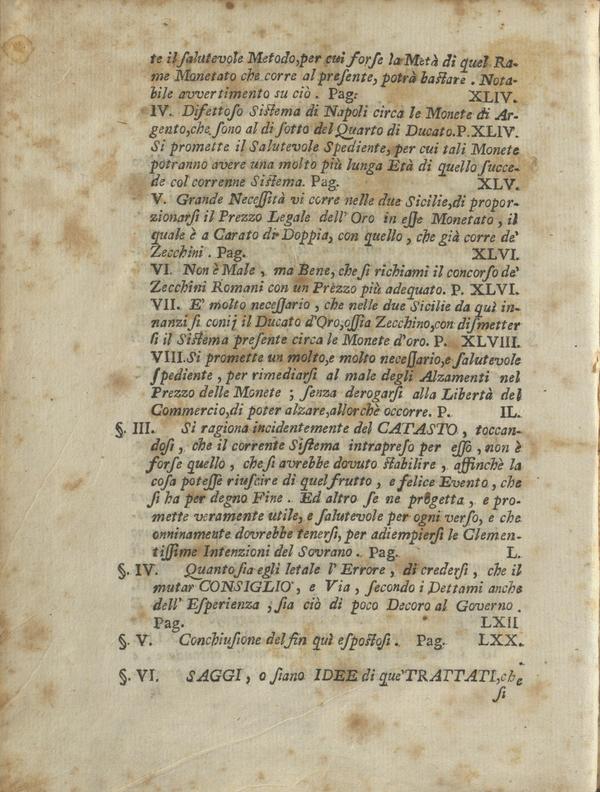 te il ſalutevole Metodo, per cui forſe la Metà di quel Ra-
me Monetato che corre al preſente, potrà baſtare. Nota-
bile avvertimento su ciò. Pag. XLIV.
IV. Difettoſo Siſtema di Napoli circa le Monete di Ar-
gento, che ſono al di ſotto del Quarto di Ducato. P. XLIV.
Si promette il Salutevole Spediente, per cui tali Monete
potranno avere una molto più lunga Età di quello ſucce-
de col correnne Siſtema. Pag. XLV.
V. Grande Neceſſità vi corre nelle due Sicilie, di propor-
zionarſi il Prezzo Legale dell' Oro in eſſe Monetato, il
quale è a Carato di Doppia, con quello, che già corre de'
Zecchini. Pag. XLVI.
VI. Non è Male, ma Bene, che ſi richiami il concorſo de'
Zecchini Romani con un Prezzo più adequato. P. XLVI.
VII. E' molto neceſſario, che nelle due Sicilie da quì in-
nanzi ſi conij il Ducato d'Oro, oſſia Zecchino, con diſmetter
ſi il Siſtema preſente circa le Monete d'oro. P. XLVIII.
VIII. Si promette un molto, e molto neceſſario, e ſalutevole
ſpediente, per rimediarſi al male degli Alzamenti nel
Prezzo delle Monete; ſenza derogarſi alla Libertà del
Commercio, di poter alzare, allorchè occorre. P. IL.
§. III. Si ragiona incidentemente del CATASTO, toccan-
doſi, che il corrente Siſtema intrapreſo per eſſo, non è
forſe quello, che ſi avrebbe dovuto ſtabilire, affinchè la
coſa poteſſe riuſcire di quel frutto, e felice Evento, che
ſi ha per degno Fine. Ed altro ſe ne progetta, e pro-
mette veramente utile, e ſalutevole per ogni verſo, e che
onninamente dovrebbe tenerſi, per adiempierſi le Clemen-
tiſſime Intenzioni del Sovrano. Pag. L.
§. IV. Quanto ſia egli letale l' Errore, di crederſi, che il
mutar CONSIGLIO, e Via, ſecondo i Dettami anche
dell' Eſperienza, ſia ciò di poco Decoro al Governo.
Pag. LXII
§. V. Conchiuſione del fin quì eſpoſtoſi. Pag. LXX.
§. VI. SAGGI, o ſiano IDEE di que' TRATTATI, che
ſi